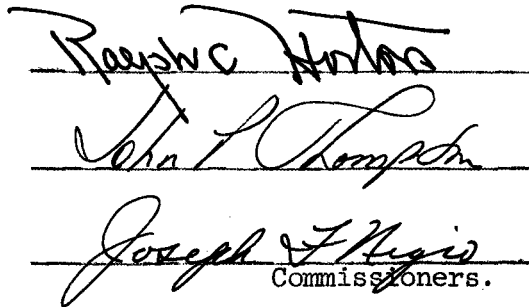 Ralph C Horton
John P Thompson
Joseph F Negio
Commissioners.